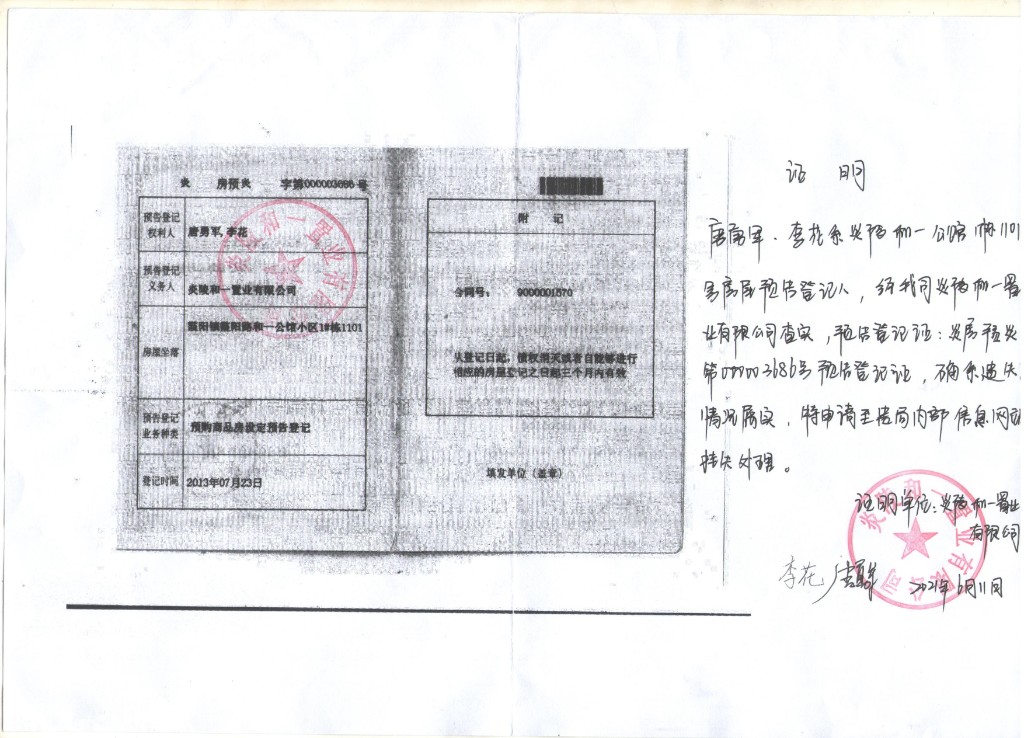 炎 房预炎 字第000003686号
预告登记权利人 唐勇军, 李花
预告登记义务人 炎陵和一置业有限公司
房屋坐落 霞阳镇霞阳路和一公馆小区1#栋1101
预告登记业务种类 预购商品房设定预告登记
登记时间 2013年07月23日
附 记
合同号: 9000001570
从登记日起, 债权消灭或者自能够进行
相应的房屋登记之日起三个月内有效
填发单位 (盖章)
炎陵和一置业有限公司
证 明
唐勇军、李花系炎陵和一公馆1栋1101
号房屋预告登记人, 经我司炎陵和一置
业有限公司查实, 预告登记证: 炎房预炎
第000003686号预告登记证, 确系遗失
情况属实, 特申请至贵局内部信息网站
挂失处理。
证明单位: 炎陵和一置业
有限公司
李花 唐勇军 2021年6月11日
炎陵和一置业有限公司